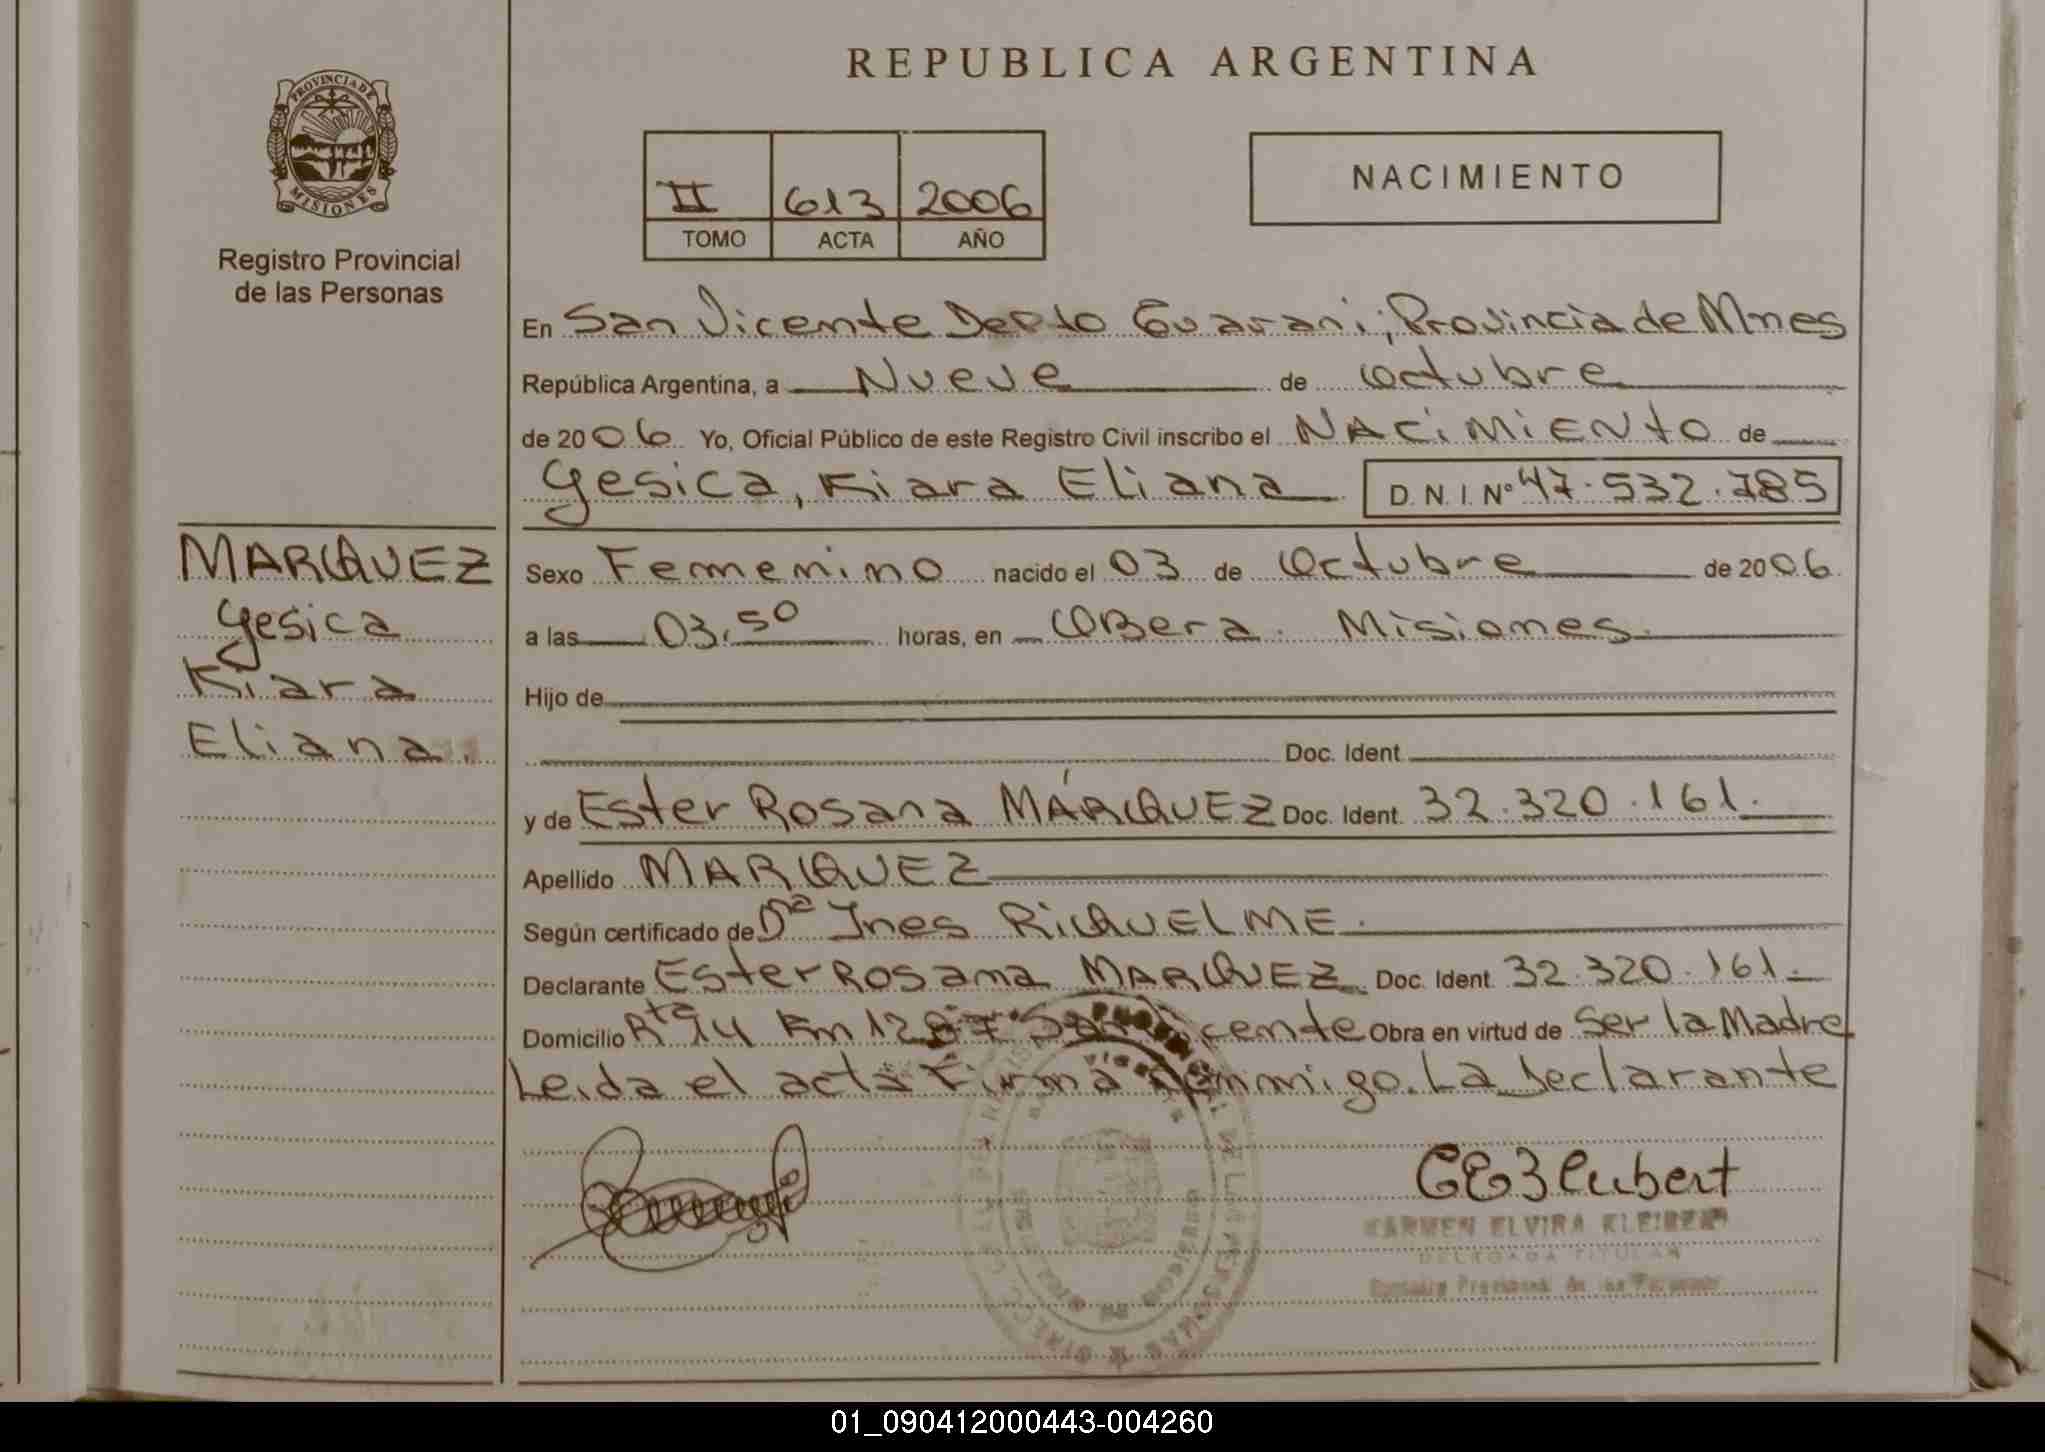 REPUBLICA ARGENTINA
PROVINCIA DE
MISIONES
Registro Provincial
de las Personas
II 613 2006
TOMO ACTA AÑO
NACIMIENTO
En San Vicente Depto Guarani; Provincia de Mnes
República Argentina, a Nueve de Octubre
de 2006 Yo, Oficial Público de este Registro Civil inscribo el NACiMiENtO de
Yesica, Kiara Eliana D. N. I. Nº 47.532.785
MARQUEZ
Yesica
Kiara
Eliana.
Sexo Femenino nacido el 03 de Octubre de 2006
a las 03,50 horas, en OBera. Misiones.
Hijo de
Doc. Ident.
y de Ester Rosana MÁRQUEZ Doc. Ident. 32.320.161.
Apellido MARQUEZ
Según certificado de Dª Ines RiQUELME.
Declarante Ester Rosana MARQUEZ Doc. Ident. 32.320.161.
Domicilio Rta 14 Km 1287 San Vicente Obra en virtud de Ser la Madre
Leida el acta Firma Conmigo. La Declarante
KARMEN ELVIRA
DELEGADA TITULAR
01_090412000443-004260